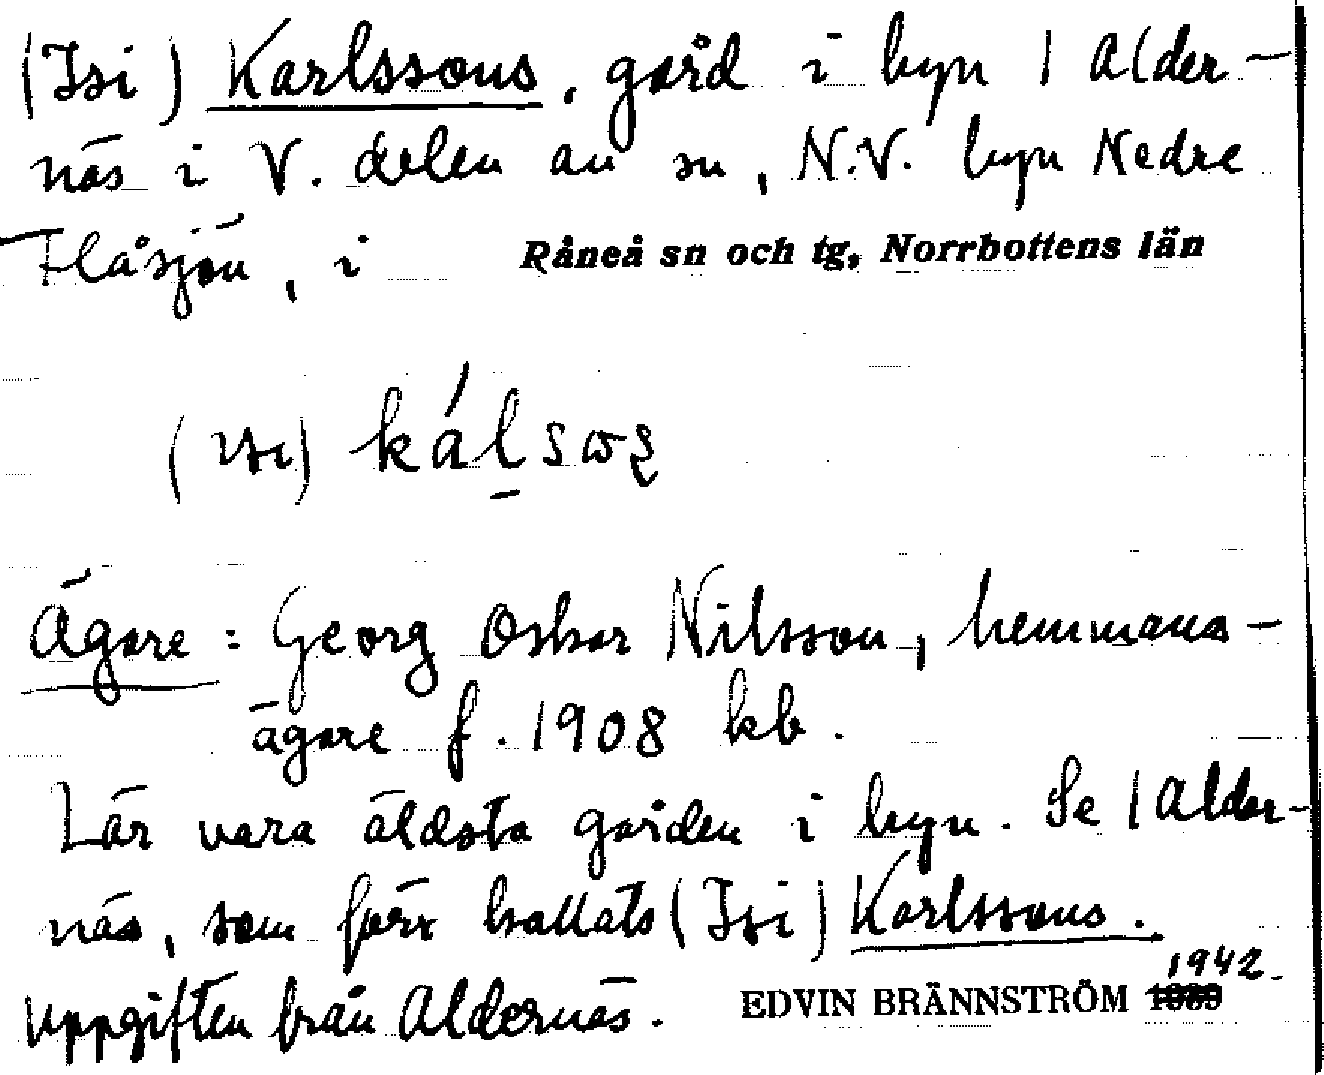 (Isi) Karlssons, gård i byn 1 Alder-
näs i V. delen av sn, N.V. byn Nedre
Flåsjön, i Råneå sn och tg, Norrbottens län
Ägare: Georg Oskar Nilsson, hemmans-
ägare f. 1908 kb.
Lär vara äldsta gården i byn. Se 1 Alder-
näs, som förr kallats (Isi) Karlssons.
1942
Uppgiften från Aldernäs. EDVIN BRÄNNSTRÖM